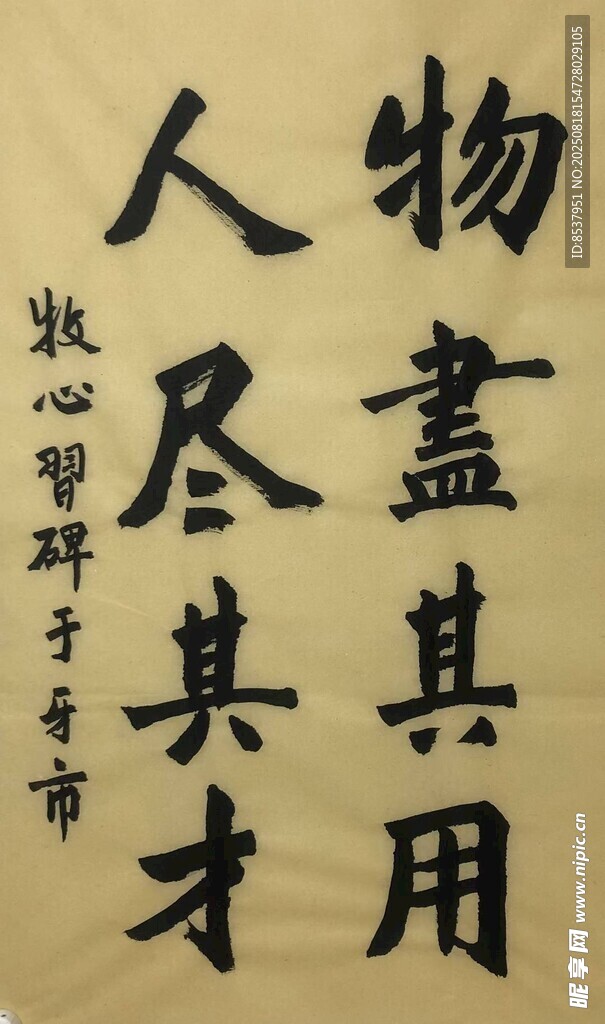 物盡其用
人尽其才
牧心習碑于牙市
ID:8537951 NO:20250818154728029105
昵享网 www.nipic.cn